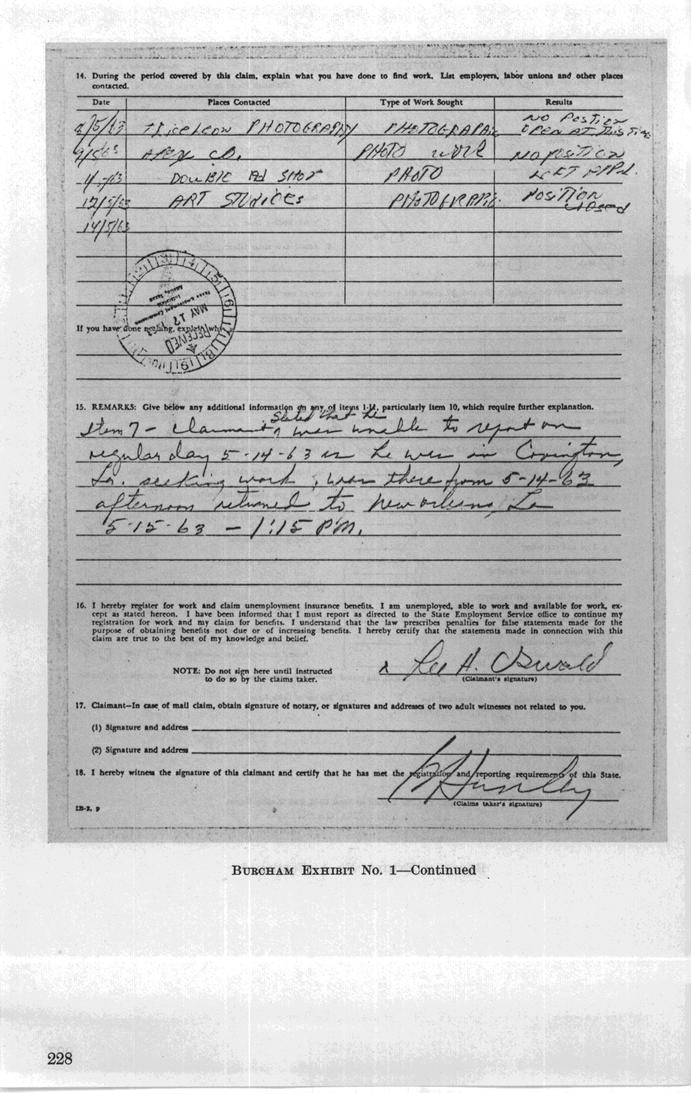 14. During the period covered by this claim, explain what you have done to find work. List employers, labor unions and other places
contacted.
Date Places Contacted Type of Work Sought Results
8/5/63 PHOTOGRAPHY PHOTOGRAPHIC NO POSTION
OPEN AT THIS TIME
9/5/63 APEX CO. PHOTO WORK NO POSITION
LEFT APPL.
DOUBLE AD SHOP PHOTO
12/5/63 ART STUDIOES PHOTOGRAPHIC POSITION
CLOSED
14/5/63
RECEIVED
MAY 17
If you have done nothing, explain why
15. REMARKS: Give below any additional information on any of items 1-14, particularly item 10, which require further explanation.
Item 7 - claimant stated that he was unable to report on
regular day 5-14-63 as he was in Covington,
La. seeking work, was there from 5-14-63
afternoon returned to New Orleans, La
5-15-63 - 1:15 P.M.
16. I hereby register for work and claim unemployment insurance benefits. I am unemployed, able to work and available for work, ex-
cept as stated hereon. I have been informed that I must report as directed to the State Employment Service office to continue my
registration for work and my claim for benefits. I understand that the law prescribes penalties for false statements made for the
purpose of obtaining benefits not due or of increasing benefits. I hereby certify that the statements made in connection with this
claim are true to the best of my knowledge and belief.
NOTE: Do not sign here until instructed
to do so by the claims taker.
x Lee H. Oswald
(Claimant's signature)
17. Claimant—In case of mail claim, obtain signature of notary, or signatures and addresses of two adult witnesses not related to you.
(1) Signature and address
(2) Signature and address
18. I hereby witness the signature of this claimant and certify that he has met the registration and reporting requirements of this State.
(Claims taker's signature)
IB-2, p
BURCHAM EXHIBIT No. 1—Continued
228